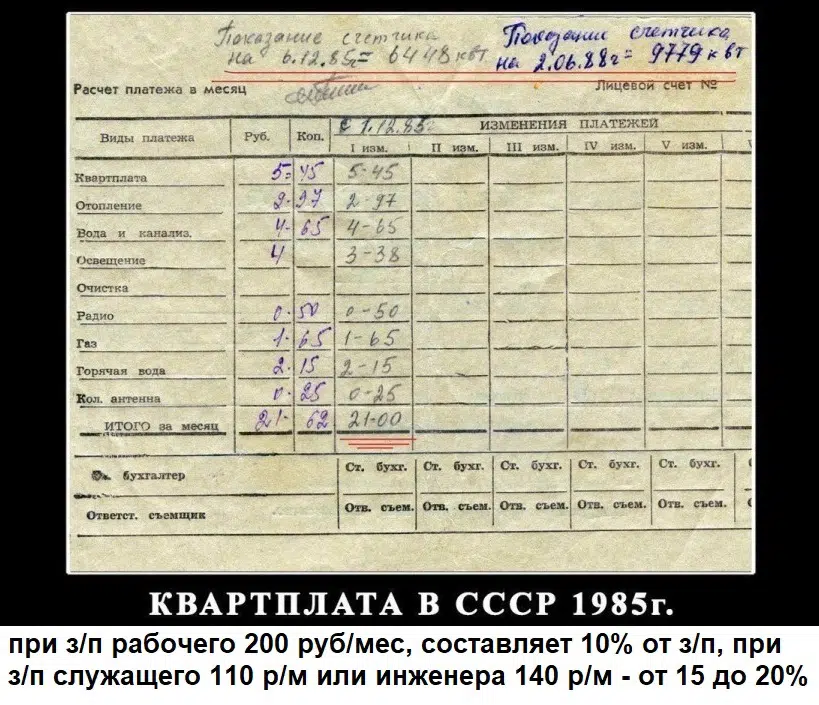 Показание счетчика
на 6.12.85г= 6448 квт
Показания счетчика
на 2.06.88г= 9779 квт
Расчет платежа в месяц
Лицевой счет №
Виды платежа Руб. Коп. с 1.12.85г. ИЗМЕНЕНИЯ ПЛАТЕЖЕЙ
I изм. II изм. III изм. IV изм. V изм.
Квартплата 5= 45 5-45
Отопление 2-97 2-97
Вода и канализ. 4-65 4-65
Освещение 4 3-38
Очистка
Радио 0-50 0-50
Газ 1-65 1-65
Горячая вода 2-15 2-15
Кол. антенна 0-25 0-25
ИТОГО за месяц 21-62 21-00
бухгалтер Ст. бухг. Ст. бухг. Ст. бухг. Ст. бухг. Ст. бухг.
Ответст. съемщик Отв. съем. Отв. съем. Отв. съем. Отв. съем. Отв. съем.
КВАРТПЛАТА В СССР 1985г.
при з/п рабочего 200 руб/мес, составляет 10% от з/п, при
з/п служащего 110 р/м или инженера 140 р/м - от 15 до 20%